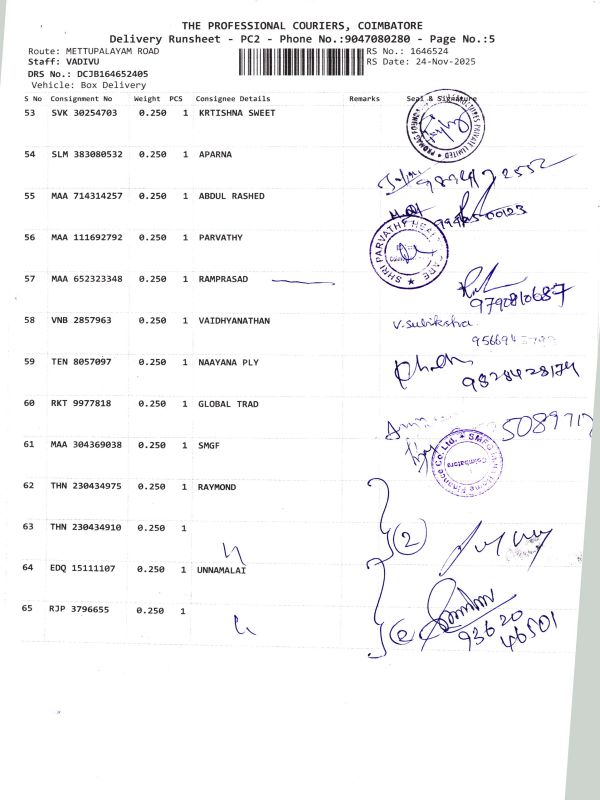 THE PROFESSIONAL COURIERS, COIMBATORE
Delivery Runsheet - PC2 - Phone No.:9047080280 - Page No.:5
Route: METTUPALAYAM ROAD RS No.: 1646524
Staff: VADIVU RS Date: 24-Nov-2025
DRS No.: DCJB164652405
Vehicle: Box Delivery
S No Consignment No Weight PCS Consignee Details Remarks Seal & Signature
53 SVK 30254703 0.250 1 KRTISHNA SWEET
54 SLM 383080532 0.250 1 APARNA
55 MAA 714314257 0.250 1 ABDUL RASHED
56 MAA 111692792 0.250 1 PARVATHY
SHRI PARVATHY HEALTH CARE
57 MAA 652323348 0.250 1 RAMPRASAD
9790810687
58 VNB 2857963 0.250 1 VAIDHYANATHAN V. Subiksha
59 TEN 8057097 0.250 1 NAAYANA PLY
9828428174
60 RKT 9977818 0.250 1 GLOBAL TRAD
61 MAA 304369038 0.250 1 SMGF
Coimbatore
62 THN 230434975 0.250 1 RAYMOND
63 THN 230434910 0.250 1 2
64 EDQ 15111107 0.250 1 UNNAMALAI
65 RJP 3796655 0.250 1
93620
46501